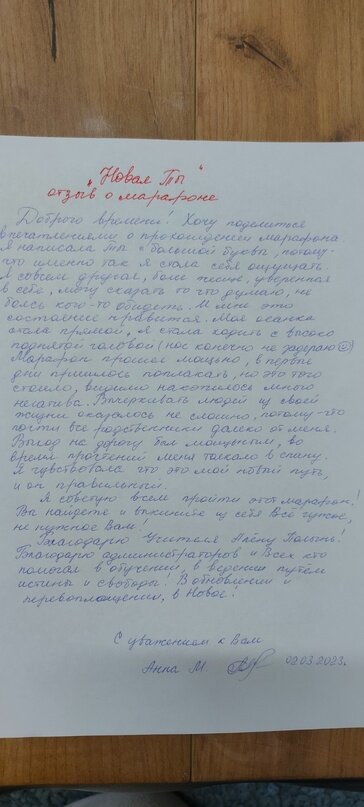 "Новая Ты"
отзыв о марафоне
Доброго времени! Хочу поделиться
впечатлениями о прохождении марафона.
Я написала Ты с большой буквы, потому-
что именно так я стала себя ощущать.
Я совсем другая, более, уверенная
в себе, могу сказать то что думаю, не
боясь кого-то обидеть. И мне это
состояние нравится. Моя осанка
стала прямой, я стала ходить с высоко
поднятой головой (нос конечно не задираю☺)
Марафон прошел мощно, в первые
дни пришлось поплакать, но это того
стоило, видимо накопилось много
негатива. Вычеркивать людей из своей
жизни оказалось не сложно, потому-что
почти все родственники далеко от меня.
Выход на дорогу был мощным, во
время прочтений меня толкало в спину.
Я чувствовала что это мой новый путь,
и он правильный.
Я советую всем пройти этот марафон!
Вы найдете и из себя Всё чужое,
не нужное Вам!
Благодарю Учителя Алёну Полынь!
Благодарю администраторов и Всех кто
помогал в обучении, в ведении путём
истины и свободы! В обновлении и
перевоплощении, в Новое!
С уважением к Вам
Анна М. 02.03.2023г.